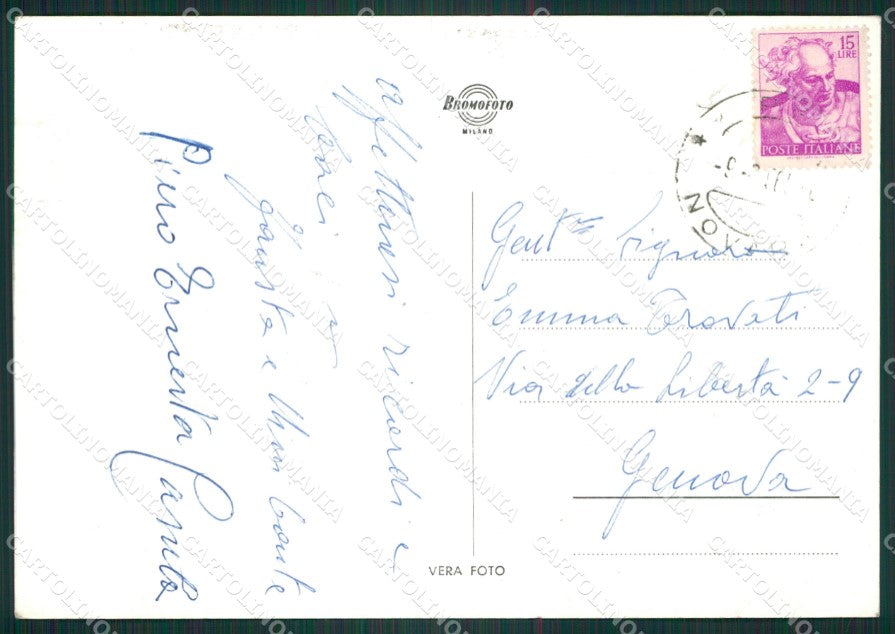 BROMOFOTO
MILANO
15
LIRE
POSTE ITALIANE
affettuosi ricordi e
baci
Giusta e Mimì
Pino Ernesta
Gent.ma Signora
Emma Trovati
Via della Libertà 2-9
Genova
VERA FOTO
CARTOLINOMANIA